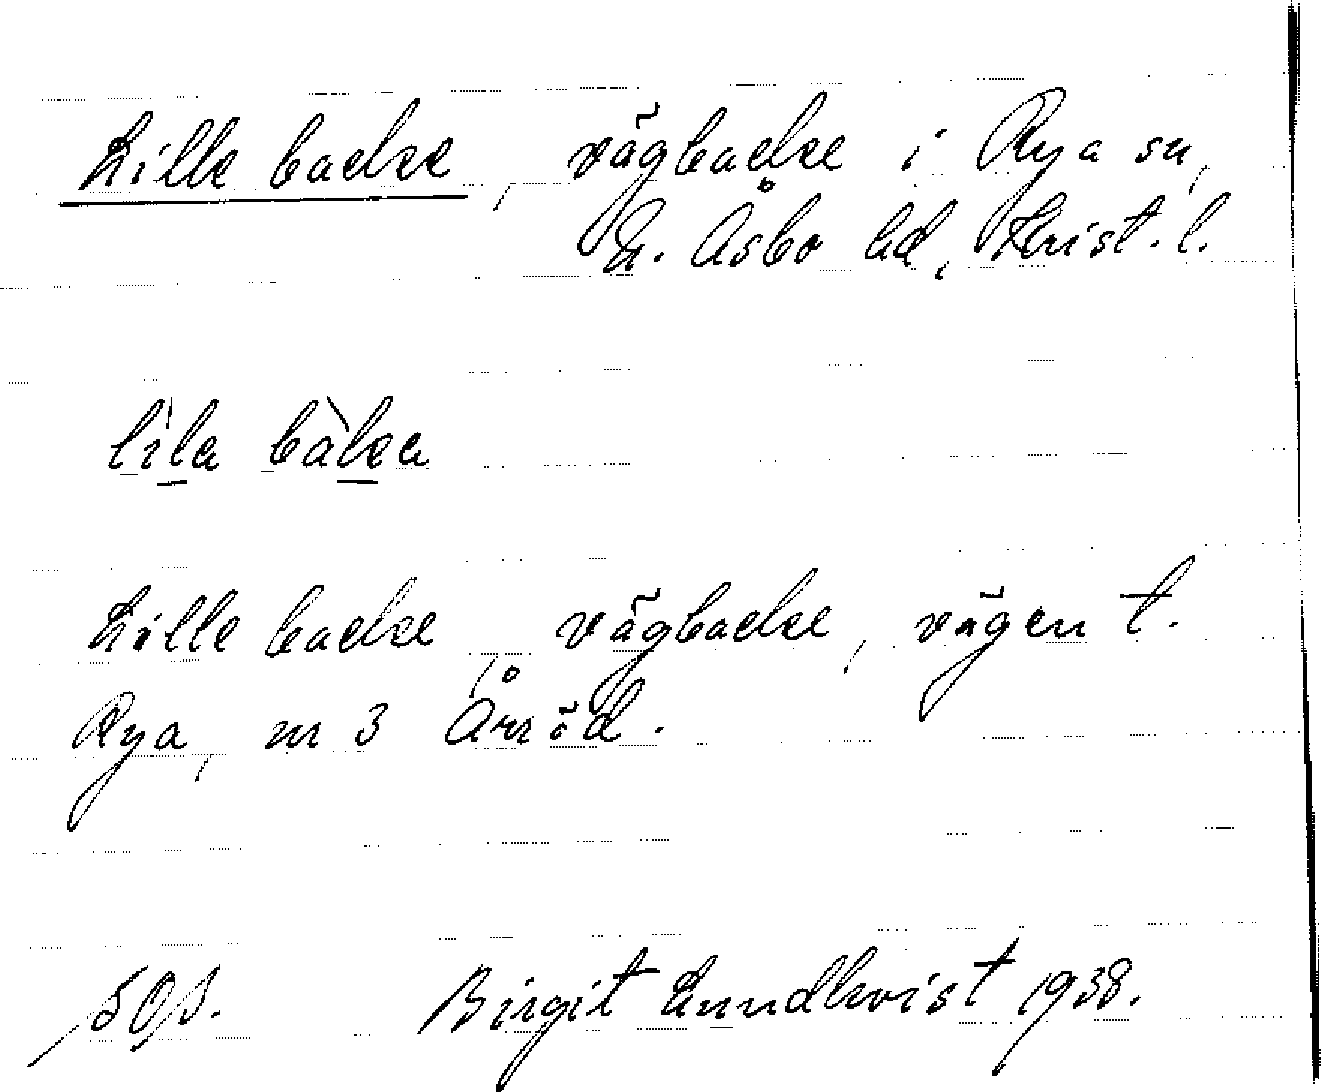 Lille backe, vägbacke i Rya sn,
N. Åsbo hd, Krist. l.
lìla bàka
Lille backe, vägbacke, vägen t.
Rya, nr 3 Årröd.
Birgit Lundkvist 1938.